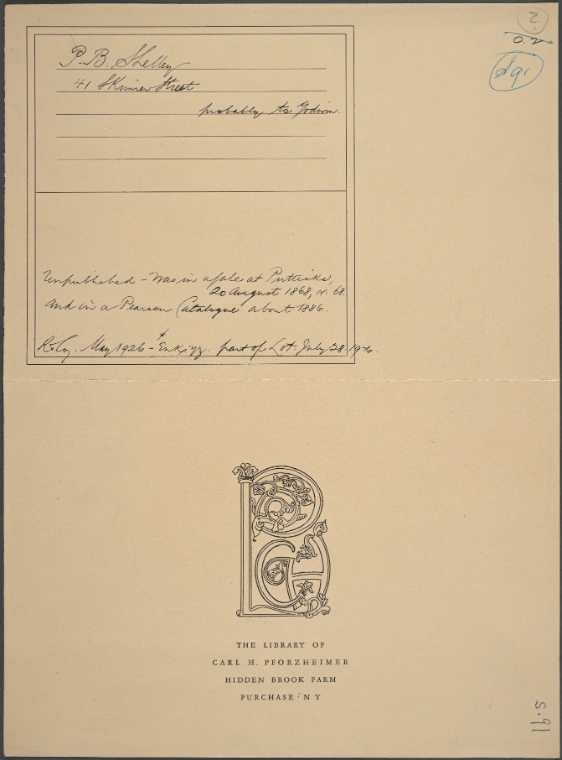 P. B. Shelley
41 Skinner Street
probably to Godwin.
Unpublished – Was in a sale at Putticks,
20 August 1868, 68.
and in a Pearson Catalogue about 1886.
May 1926 – part of Lot. July 28. 1926
THE LIBRARY OF
CARL H. PFORZHEIMER
HIDDEN BROOK FARM
PURCHASE : N Y